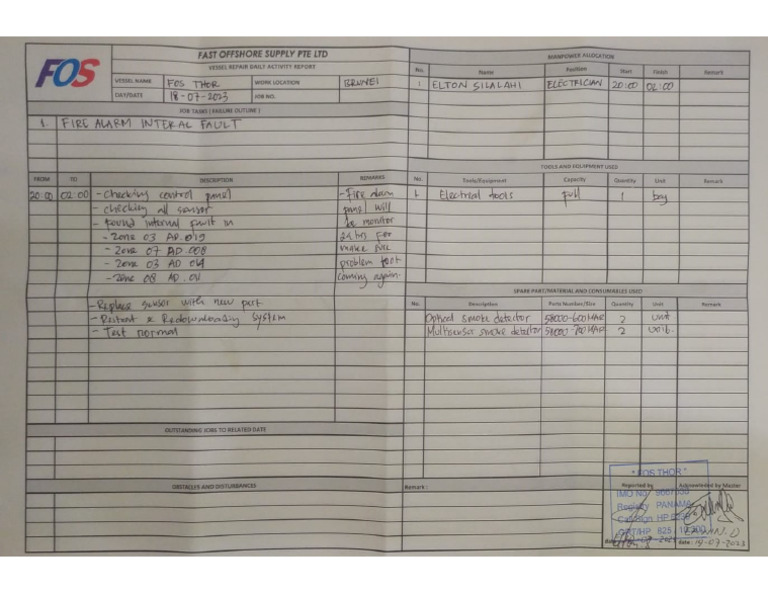 FOS
FAST OFFSHORE SUPPLY PTE LTD
VESSEL REPAIR DAILY ACTIVITY REPORT
VESSEL NAME FOS THOR WORK LOCATION BRUNEI
DAY/DATE 18-07-2023 JOB NO.
JOB TASKS ( FAILURE OUTLINE )
1. FIRE ALARM INTERAL FAULT
FROM TO DESCRIPTION REMARKS
20:00 02:00 - Checking control panel - Fire alarm
- checking all sensor panel will
- Found internal fault in be monitor
- Zone 03 AD.019 24 hrs For
- Zone 07 AD.008 make sure
- Zone 03 AD 014 problem
- Zone 08 AD.01 coming again.
- Replace sensor with new part
- Restart & Redownloading system
- Test normal
OUTSTANDING JOBS TO RELATED DATE
OBSTACLES AND DISTURBANCES
MANPOWER ALLOCATION
No. Name Position Start Finish Remark
1 ELTON SILALAHI ELECTRICIAN 20:00 02:00
TOOLS AND EQUIPMENT USED
No. Tools/Equipment Capacity Quantity Unit Remark
1. Electrical tools full 1 bag
SPARE PART/MATERIAL AND CONSUMABLES USED
No. Description Parts Number/Size Quantity Unit Remark
Optical smoke detector 58000-600MAR 2 unit
Multisensor smoke detector 58000-700MAR 2 unit.
Remark :
"FOS THOR"
Reported by Acknowledged by Master
IMO No
Registry PANAMA
Call sign HP
GRT/HP 825
date date : 19-07-2023